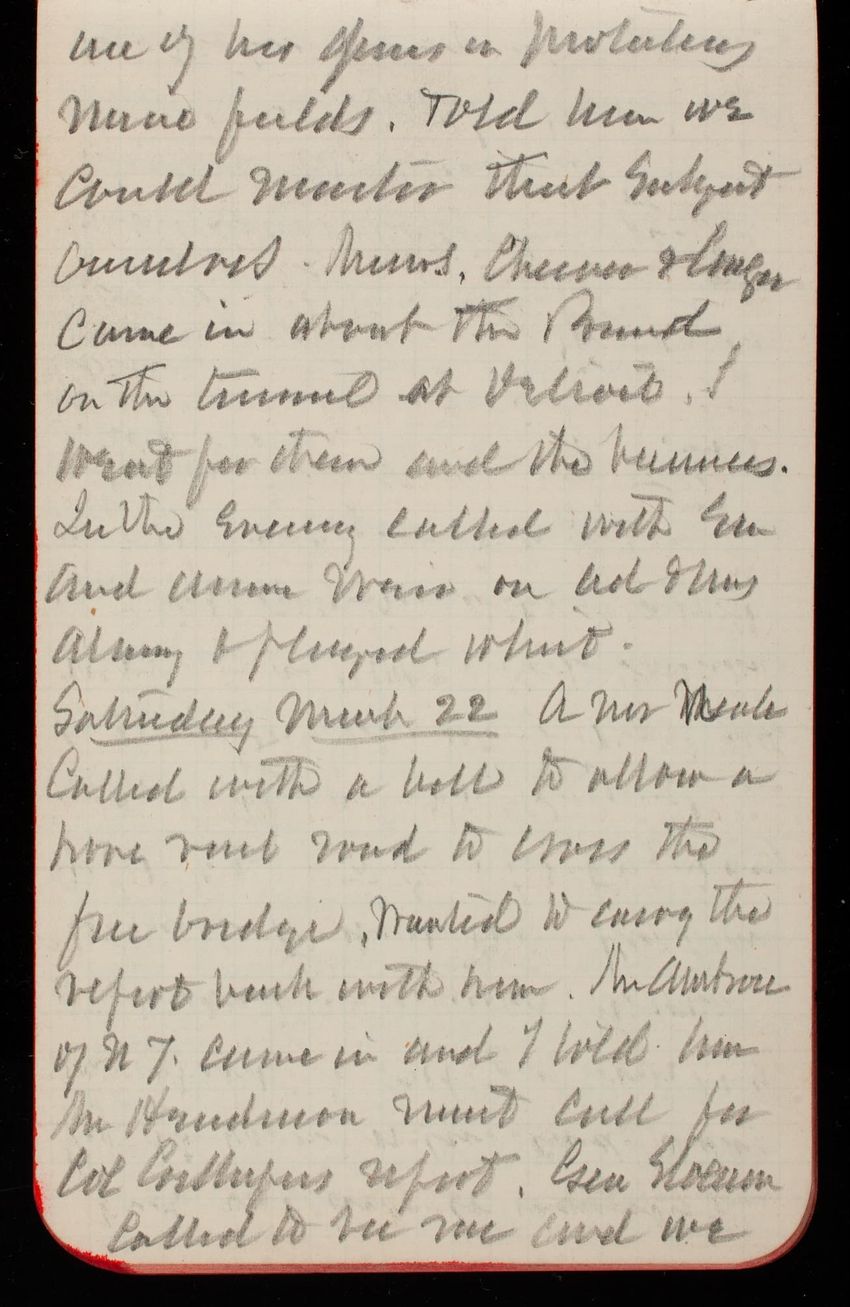 use of his in protecting
mine fields. Told him we
could master that subject
ourselves. News. Cheever &
came in about the Board
on the tunnel at Detroit. I
went for them and the business.
In the Evening called with Em
and on Col & Mrs
& played whist.
Saturday March 22 A Mr
Called with a bill to allow a
rail road to cross the
free bridge, Wanted to carry the
report back with him. Mr Ambrose
of N Y. came in and I told him
Mr Henderson must call for
Col report. Gen Slocum
called to see me and we